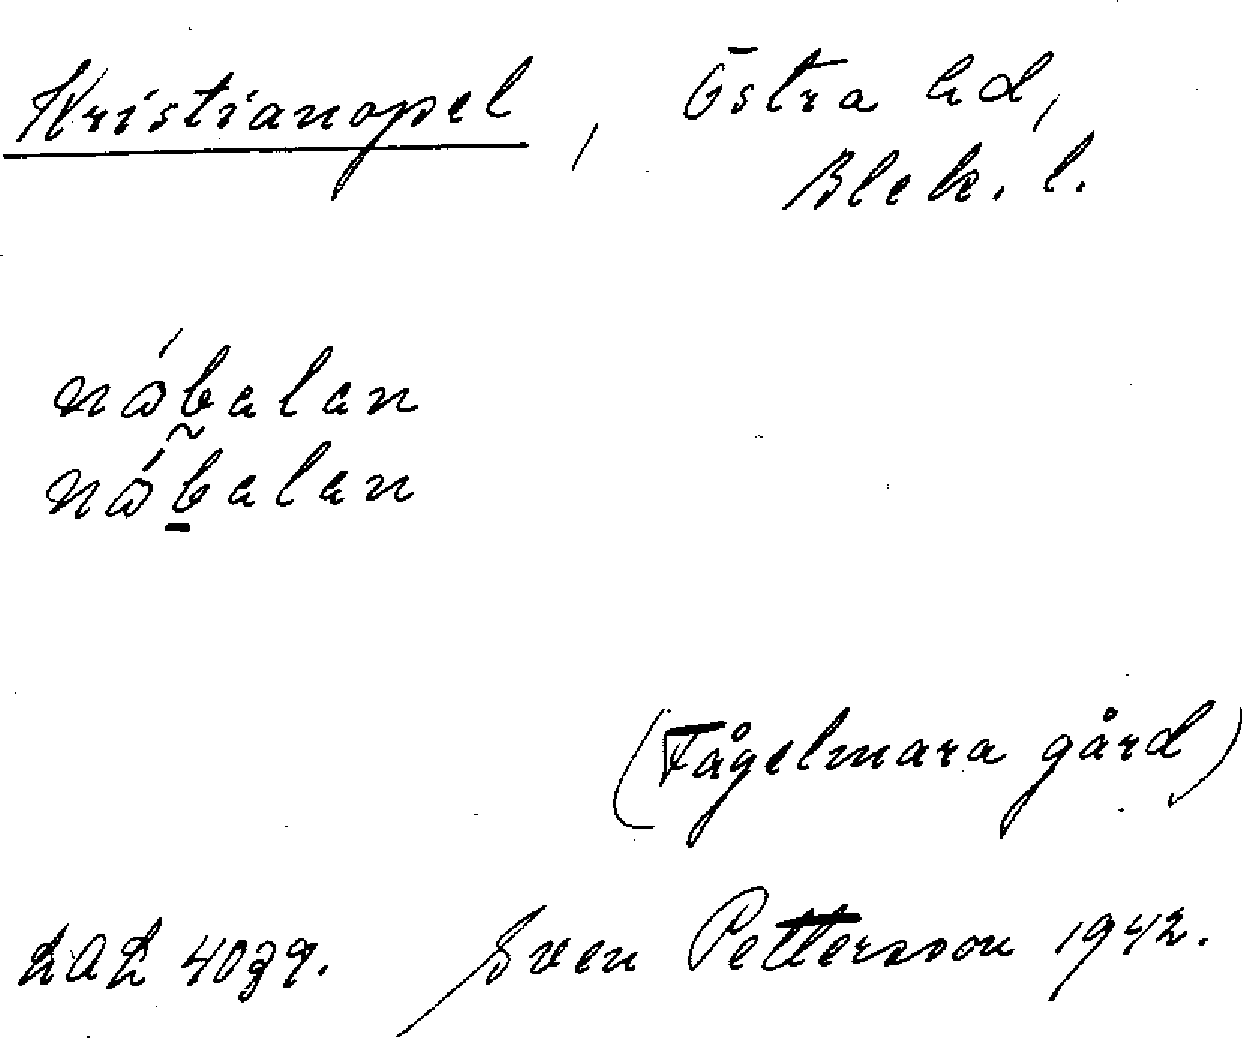 Kristianopel, Östra hd,
Blek. l.
nåbalan
nåbalan
(Fågelmara gård)
LAL 4039. Sven Pettersson 1942.